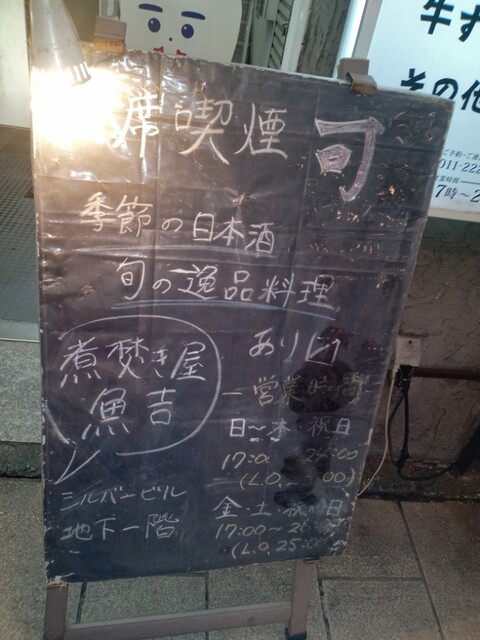 席喫煙可
季節の日本酒
旬の逸品料理
あります
煮焚き屋
魚吉
シルバービル
地下一階
営業時間
日〜木・祝日
17:00〜24:00
金・土・祝前日
17:00〜26:00
(L.O.25:00)
牛す
その他
ご予約・ご連
011-222
営業時間